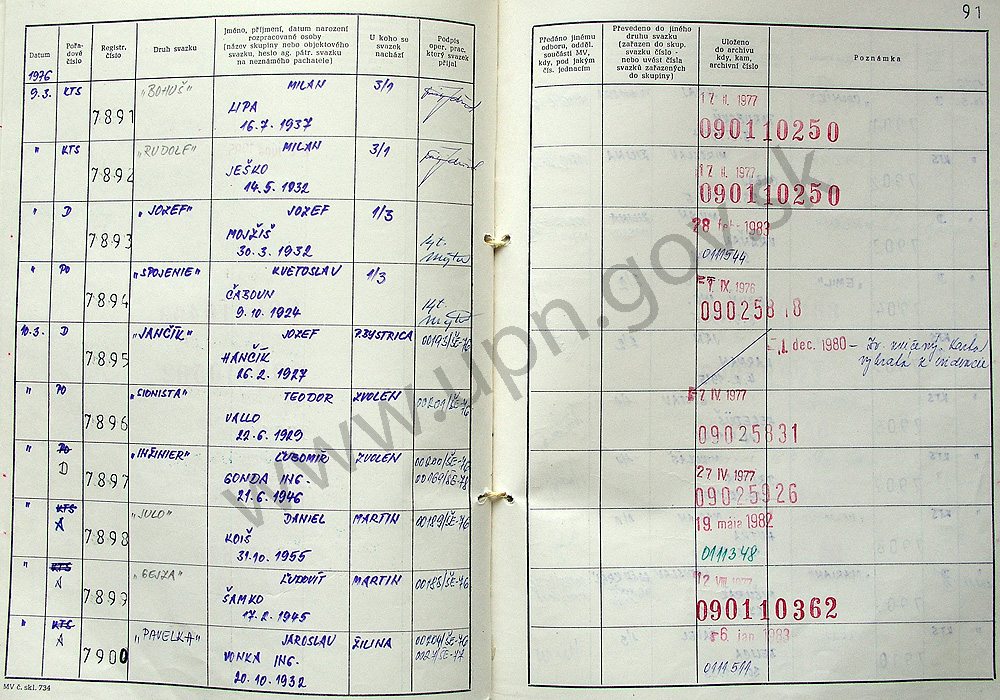 91
Datum
Pořadové číslo
Registr. číslo
Druh svazku
Jméno, příjmení, datum narození rozpracované osoby (název skupiny nebo objektového svazku, heslo ag. pátr. svazku na neznámého pachatele)
U koho se svazek nachází
Podpis oper. prac. který svazek přijal
Předáno jinému odboru, odděl. součásti MV, kdy, pod jakým čís. jednacím
Převedeno do jiného druhu svazku (zařazen do skup. svazku číslo - nebo uvést čísla svazků zařazených do skupiny)
Uloženo do archivu kdy, kam, archivní číslo
Poznámka
1976
9.3. KTS 7891 „BOHUŠ" MILAN 3/1
LIPA
16.7. 1937
17 II. 1977
090110250
" KTS 7892 „RUDOLF" MILAN 3/1
JEŠKO
14.5. 1932
17 II. 1977
090110250
" D 7893 „JOZEF" JOZEF 1/3
MOJŽIŠ
30.3. 1932
28 feb. 1983
0111544
" PO 7894 „SPOJENIE" KVETOSLAV 1/3
ČABOUN
9.10. 1924
IX. 1976
090258 18
10.3. D 7895 „JANČÍK" JOZEF P.BYSTRICA 00193/ŠE-76
HANČÍK
26.2. 1927
1. dec. 1980 – Zv. zničený. Karta vybratá z evidencie
" PO 7896 „SIONISTA" TEODOR ZVOLEN 00201/ŠE-76
VALLO
22.6. 1929
IV. 1977
09025831
" PO D 7897 „INŽINIER" ĽUBOMÍR ZVOLEN 00200/ŠE-76
GONDA ING. 00169/ŠE-78
21.6. 1946
27 IV. 1977
09025926
" KTS A 7898 „JULO" DANIEL MARTIN 00189/ŠE-76
KOIŠ
31.10. 1955
19. mája 1982
0111348
" KTS A 7899 „GEJZA" ĽUDOVÍT MARTIN 00188/ŠE-76
ŠAMKO
17.2. 1945
12 VIII. 1977
090110362
" KTS A 7900 „PAVELKA" JAROSLAV ŽILINA 00204/ŠE-76
VONKA ING.
20.10. 1932
6. jan. 1983
0111511
MV č. skl. 734
www.upn.gov.sk